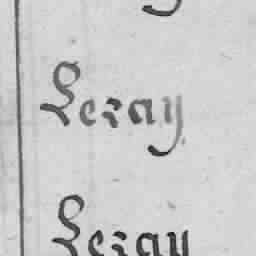 Leray
Leray